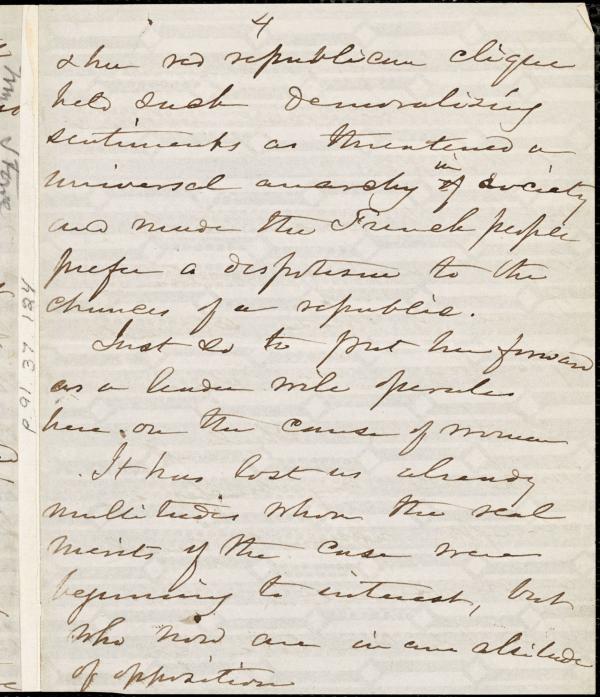 4
& her red republican clique
held such demoralizing
sentiments as threatened a
universal anarchy in of society
and made the French people
prefer a despotism to the
chances of a republic.
Just so to put her forward
as a leader will operate
here on the cause of women
It has lost us already
multitudes whom the real
merits of the case were
beginning to interest, but
who now are in an attitude
of opposition